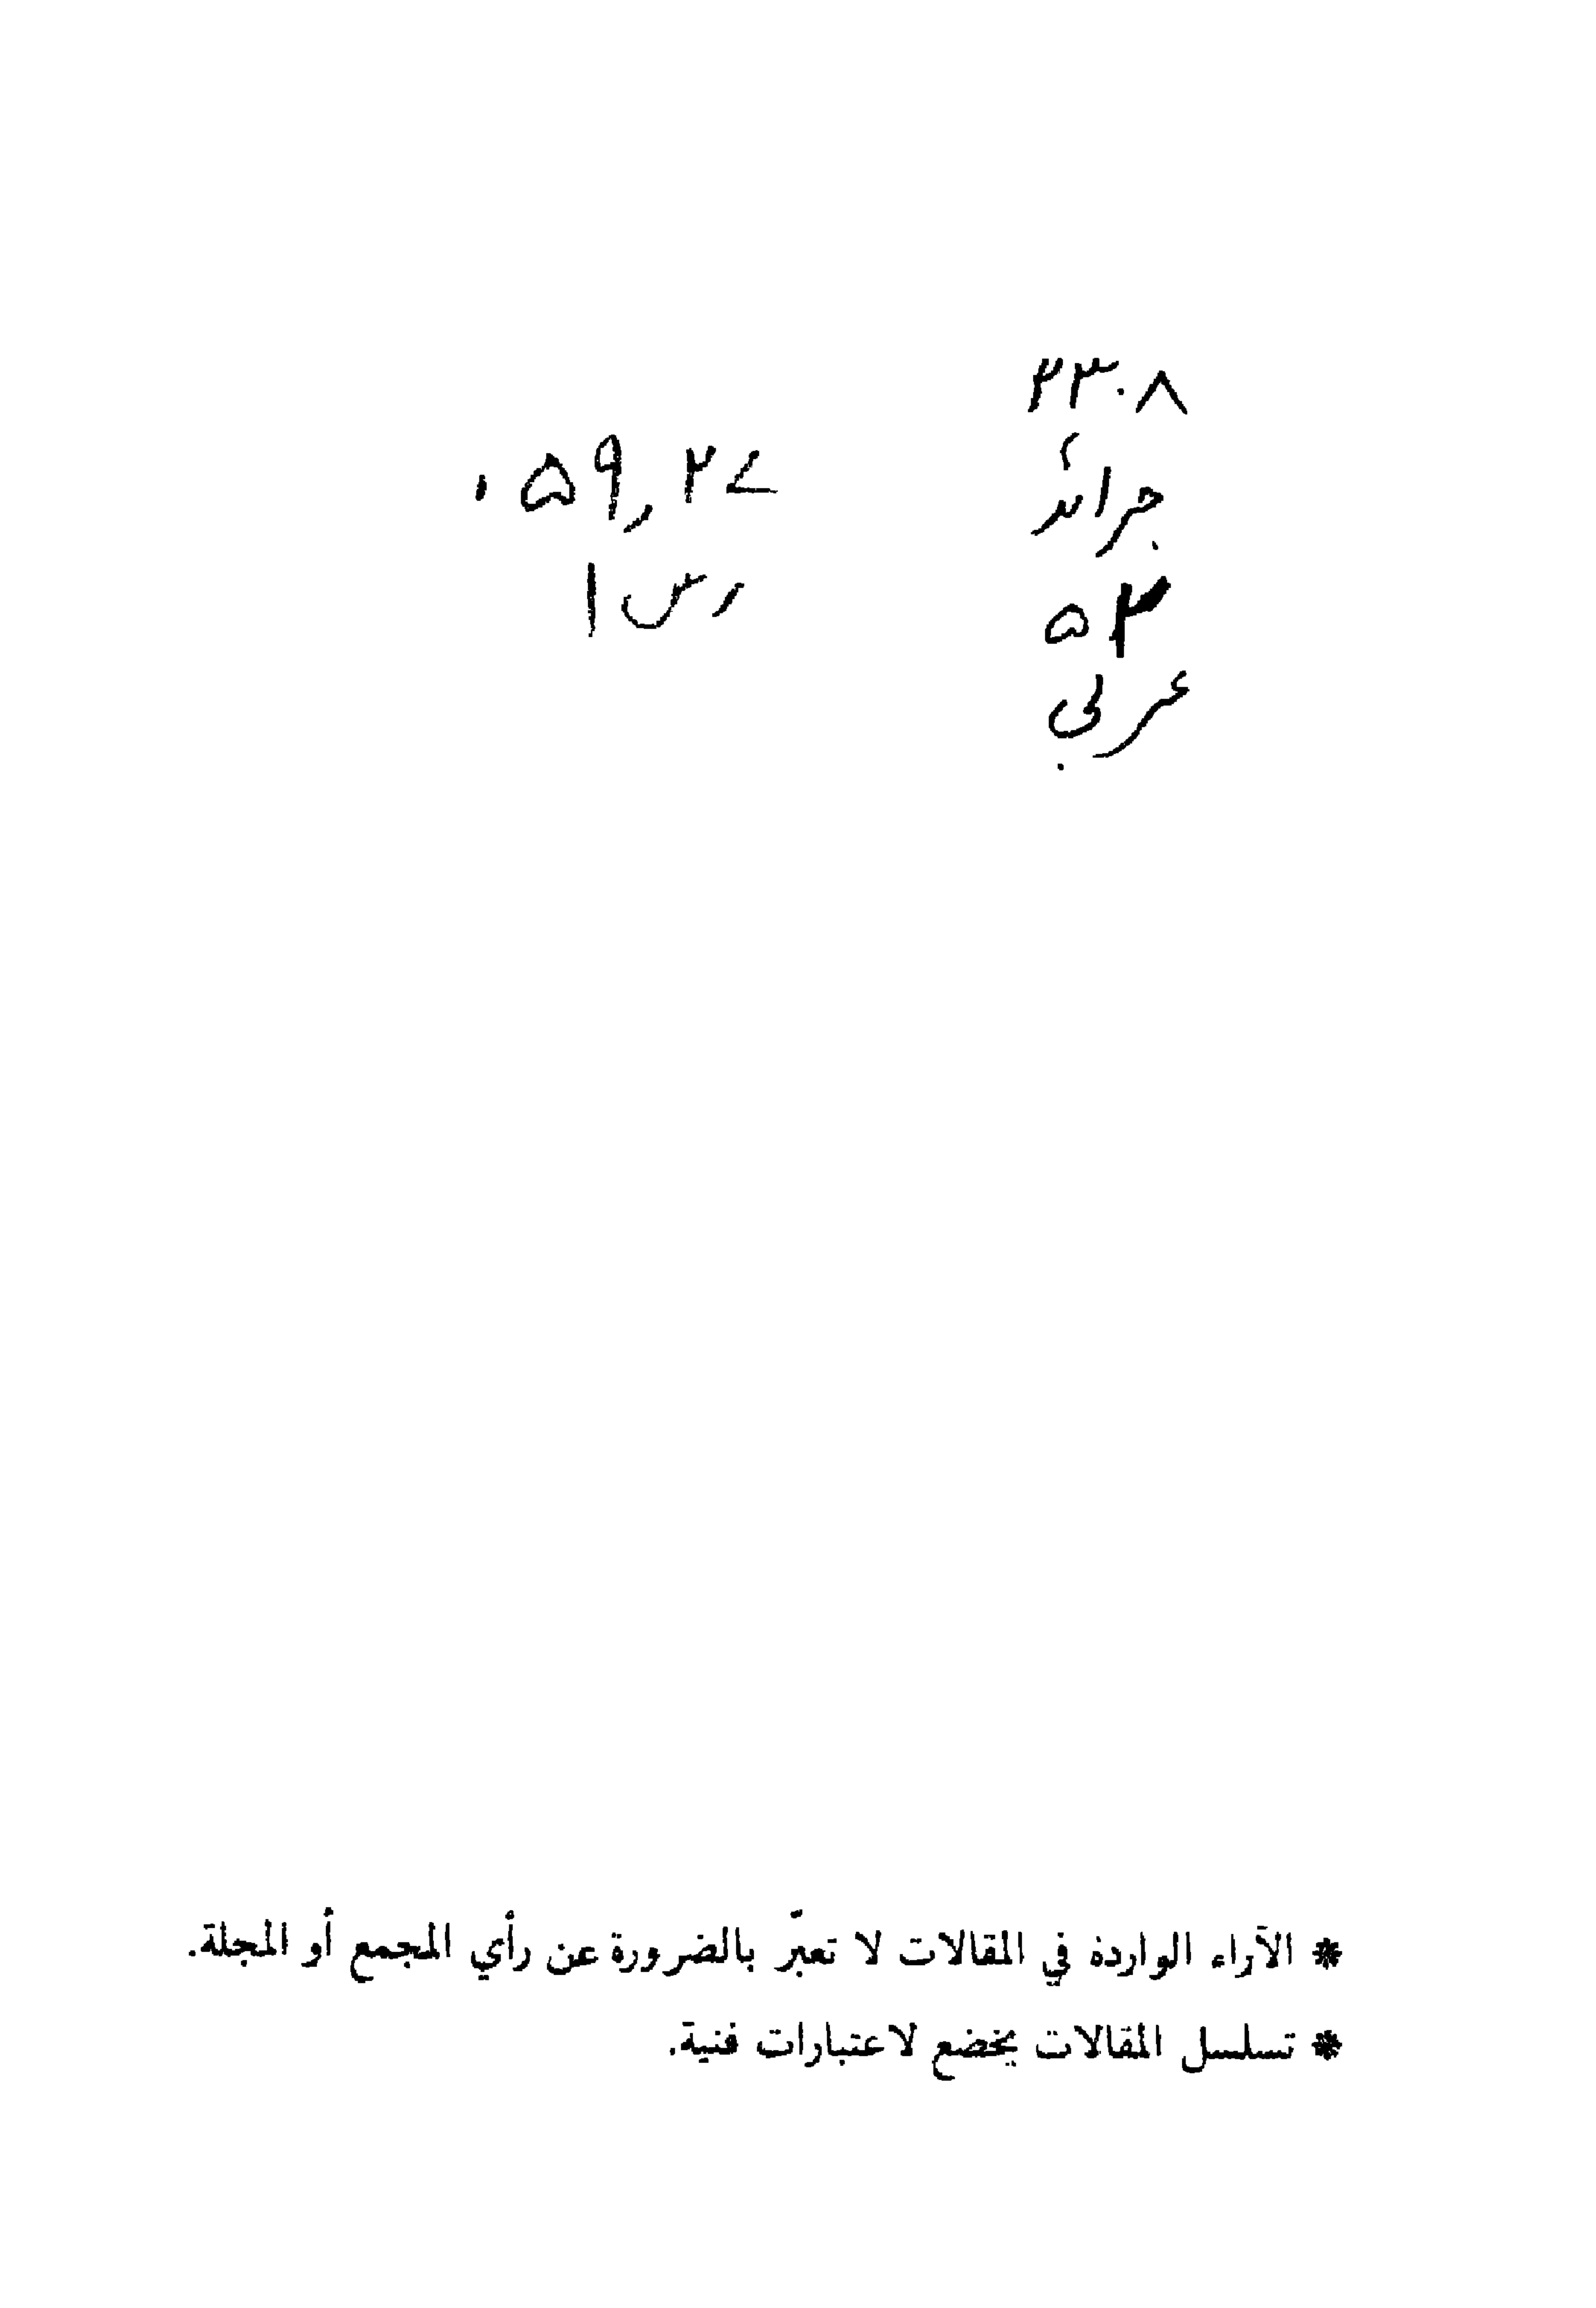 ۲۳۰۸
جرائد
۵۲
عربی
۰۵۹٫۲۷
رس ا
* الآراء الواردة في المقالات لا تعبّر بالضرورة عن رأي المجمع أو المجلة.
* تسلسل المقالات يخضع لاعتبارات فنية.